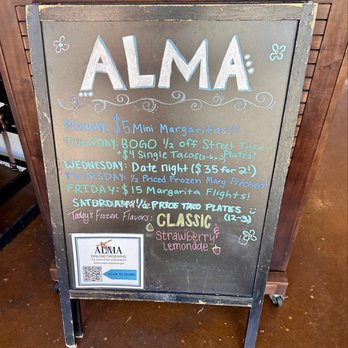 ALMA
MONDAY: $5 Mini Margaritas!!!
TUESDAY: BOGO ½ off Street Taco
+ $4 Single Tacos Plates!
WEDNESDAY: Date Night ($35 for 2!)
THURSDAY: ½ Priced Frozen Marg Pitchers
FRIDAY: $15 Margarita Flights!
SATURDAY: ½ PRICE TACO PLATES
Today's Frozen Flavors: CLASSIC (12-3)
&
Strawberry
Lemonade
ALMA
ONLINE ORDERING
SCAN TO ORDER